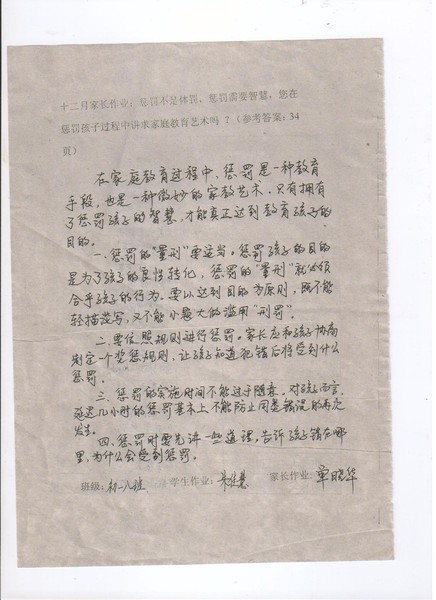 十二月家长作业：惩罚不是体罚，惩罚需要智慧，您在
惩罚孩子过程中讲求家庭教育艺术吗？（参考答案：34
页）
在家庭教育过程中，惩罚是一种教育
手段，也是一种微妙的家教艺术。只有拥有
了惩罚孩子的智慧，才能真正达到教育孩子的
目的。
一、惩罚的"量刑"要适当。惩罚孩子的目的
是为了孩子的良性转化，惩罚的"量刑"就必须
合乎孩子的行为。要以达到目的为原则，既不能
轻描淡写，又不能小题大做滥用"刑罚"。
二、要依照规则进行惩罚。家长应和孩子协商
制定一个奖惩规则，让孩子知道犯错后将受到什么
惩罚。
三、惩罚的实施时间不能过于随意。对孩子而言，
延迟几小时的惩罚基本上不能防止同类错误的再次
发生。
四、惩罚时要先讲一些道理，告诉孩子错在哪
里，为什么会受到惩罚。
班级：初一八班 学生作业： 家长作业：单晓华